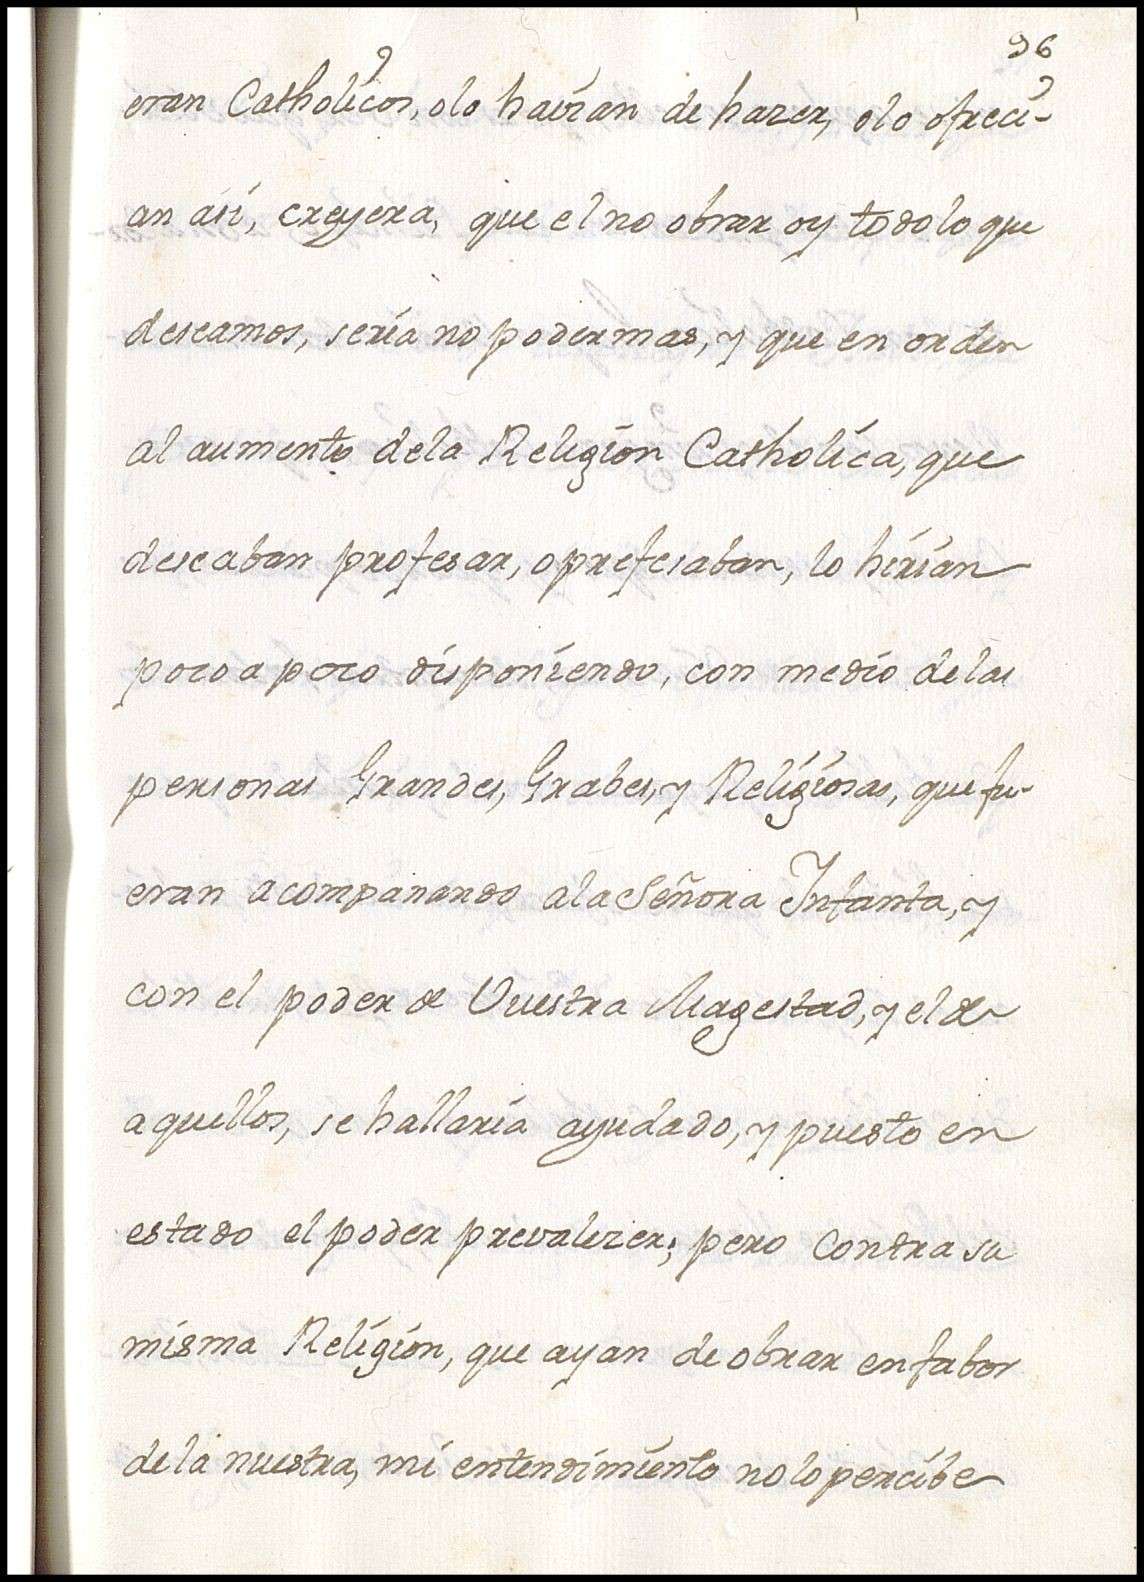 96
eran Catholicos, olo havian de hazer, olo ofreci-
an asi, creyera, que el no obrar oy todo lo que
deseamos, seria no poder mas, y que en orden
al aumento dela Religion Catholica, que
deseaban profesar, o profesaban, lo hirian
poco a poco disponiendo, con medio de las
personas Grandes, Grabes, y Religiosas, que fu-
eran acompanando ala Señora Infanta, y
con el poder de Vuestra Magestad, y el de
aquellos, se hallaria ayudado, y puesto en
estado el poder prevalezer; pero contra su
misma Religion, que ayan de obrar en fabor
de la nuestra, mi entendimiento no lo percibe